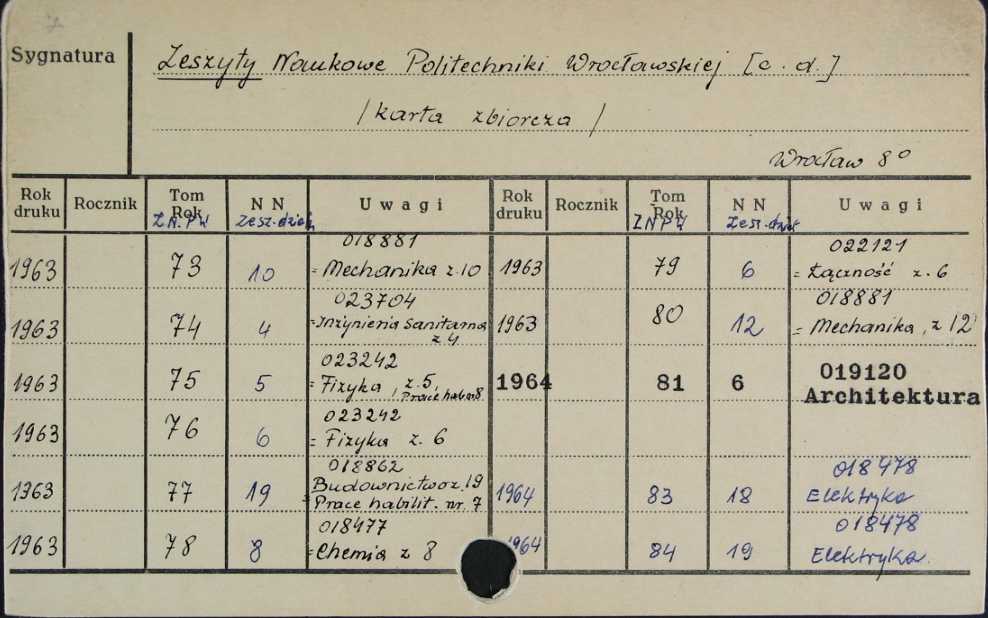 Sygnatura
Zeszyty Naukowe Politechniki Wrocławskiej [c. d.]
/karta zbiorcza/
Wrocław 8°
Rok druku Rocznik Tom Rok Z.N.PW N N Zesz.-dział. Uwagi Rok druku Rocznik Tom Rok ZNPW N N Zesz.-dział Uwagi
1963 73 10 018881 = Mechanika z.10 1963 79 6 022121 = Łączność z. 6
1963 74 4 023704 = Inżynieria Sanitarna z 4 1963 80 12 018881 = Mechanika, z 12
1963 75 5 023242 = Fizyka, z.5, Prace habil. 8 1964 81 6 019120 Architektura
1963 76 6 023242 = Fizyka z. 6
1963 77 19 018862 = Budownictwo z. 19 Prace habilit. nr. 7 1964 83 18 018478 Elektryka
1963 78 8 018477 = Chemia z 8 1964 84 19 018478 Elektryka.